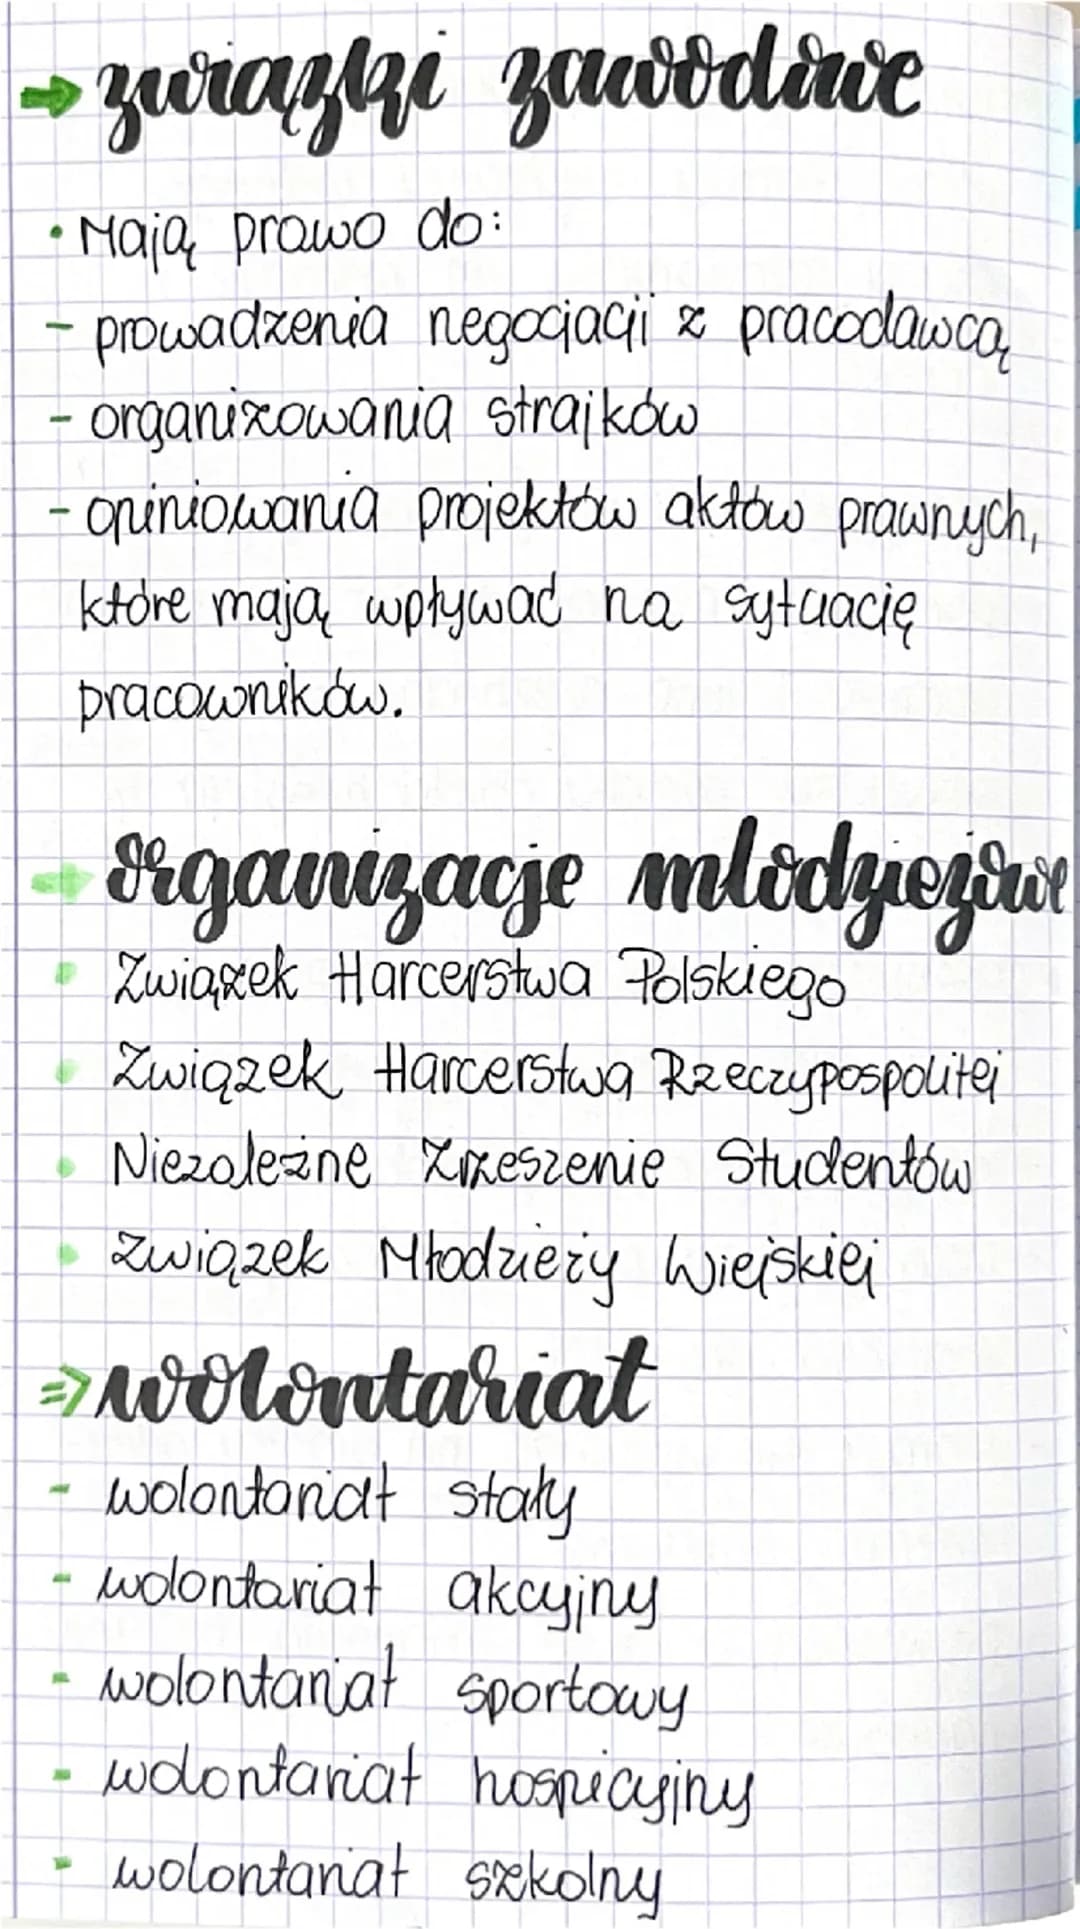 → związki zawodowe
• Mają prawo do:
- prowadzenia negocjacji z pracodawcą
- organizowania strajków
- opiniowania projektów aktów prawnych,
które mają wpływać na sytuację
pracowników.
→ organizacje młodzieżowe
• Związek Harcerstwa Polskiego
• Związek Harcerstwa Rzeczypospolitej
• Niezależne Zrzeszenie Studentów
• Związek Młodzieży Wiejskiej
⇒ wolontariat
- wolontariat stały
- wolontariat akcyjny
- wolontariat sportowy
- wolontariat hospicyjny
- wolontariat szkolny